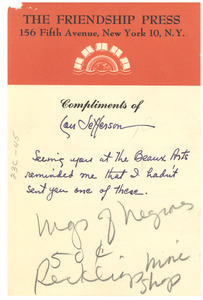 THE FRIENDSHIP PRESS
156 Fifth Avenue, New York 10, N.Y.
Compliments of
Jefferson
Seeing you at the Beaux Arts
reminded me that I hadn't
sent you one of these.
of Negroes
50¢
Shop